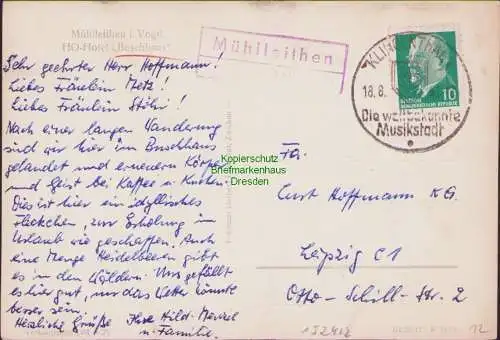 Mühlleithen i. Vogtl.
HO-Hotel „Buschhaus"
Mühlleithen
KLINGENTHAL
18.8.
Die weltbekannte
Musikstadt
10
DEUTSCHE
DEMOKRATISCHE REPUBLIK
Sehr geehrter Herr Hoffmann!
Liebes Fräulein Metz!
Liebes Fräulein Stöhr!
Nach einer langen Wanderung
sind wir hier im Buschhaus
gelandet und erneuern Körper
und Geist bei Kaffee u. Kuchen.
Dies ist hier ein idyllisches
Fleckchen, zur Erholung im
Urlaub wie geschaffen. Auch
eine Menge Heidelbeeren gibt
es in den Wäldern. Uns gefällt
es hier gut, nur das Wetter könnte
besser sein.
Herzliche Grüße Ihre Hild. Menzel
u. Familie.
Fa.
Curt Hoffmann K.G.
Leipzig C1
Otto-Schill-Str. 2
Kopierschutz
Briefmarkenhaus
Dresden
152412
12